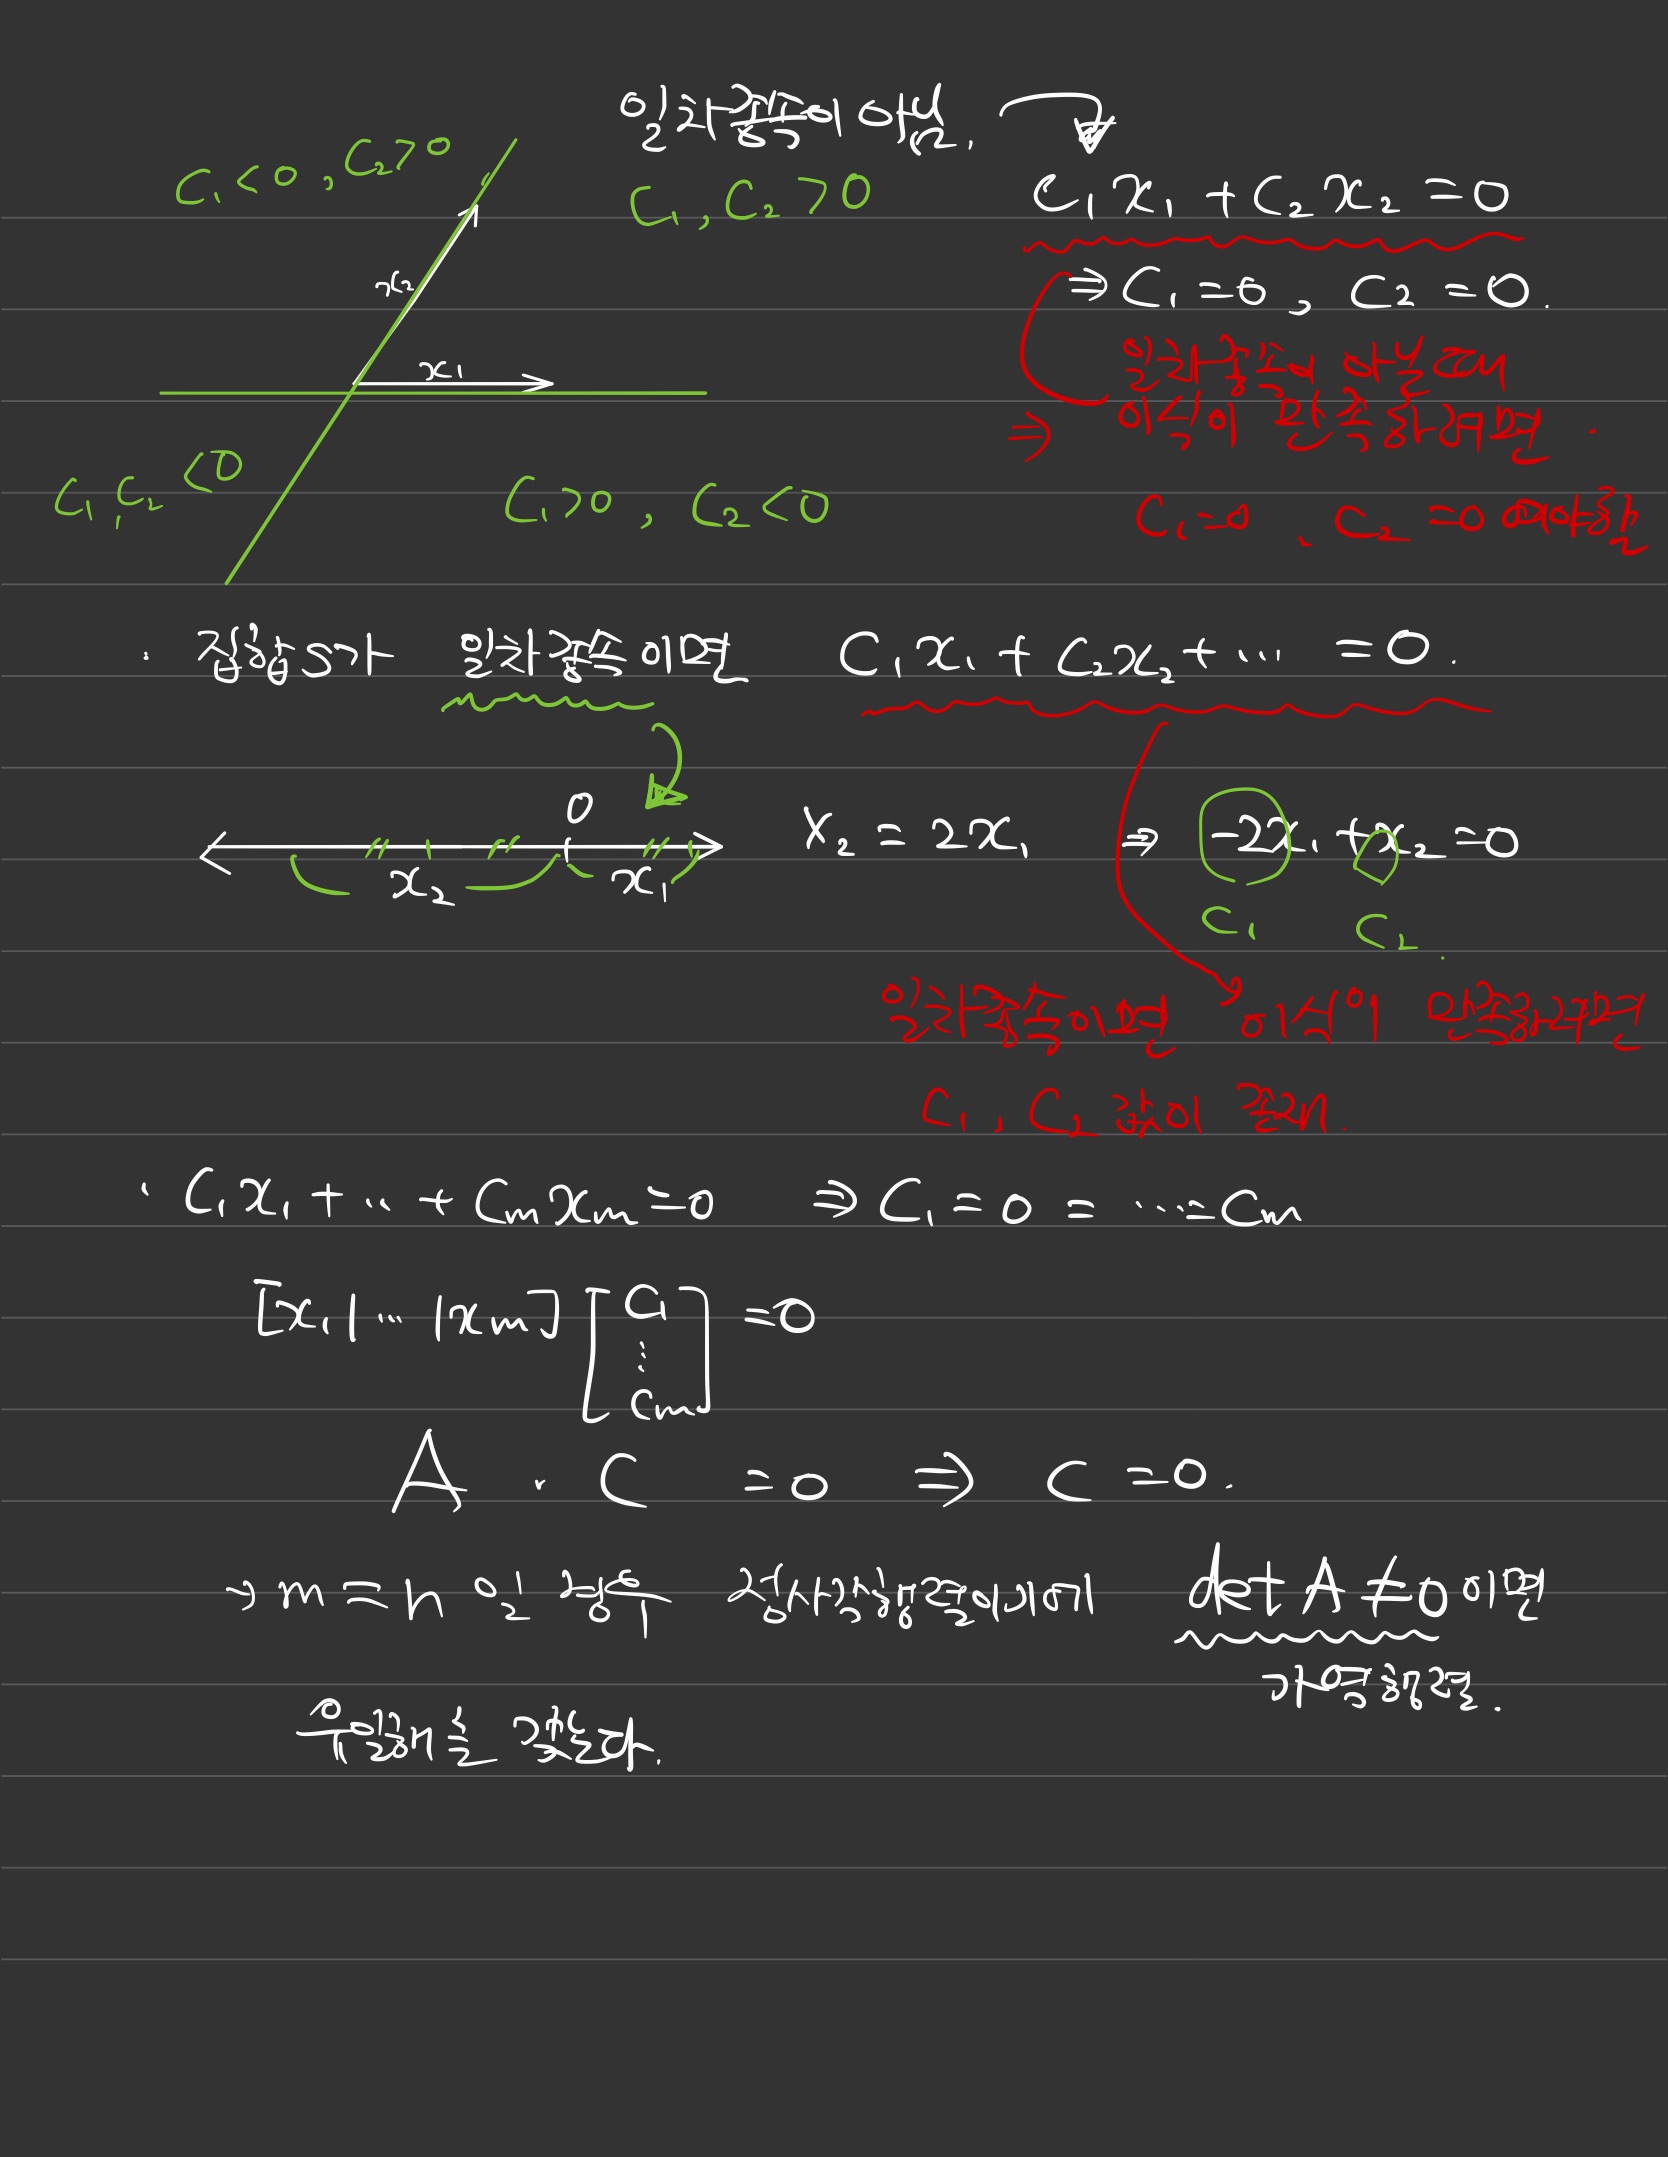 일차종속이 아님.
C₁<0, C₂>0
C₁, C₂>0
C₁x₁ + C₂x₂ = 0
⇒ C₁=0, C₂=0.
x₂
x₁
일차종속이 아닐 때
⇒ 이식이 만족하려면
C₁, C₂ <0
C₁>0, C₂<0
C₁=0, C₂=0 여야함
· 집합S가 일차종속이면 C₁x₁ + C₂x₂ + ⋯ = 0.
0
x₂ x₁
X₂ = 2x₁ ⇒ -2x₁ + x₂ = 0
C₁ C₂
일차종속이면 이식이 만족하려면
C₁, C₂ 값이 존재.
· C₁x₁ + ‥ + Cₘxₘ = 0 ⇒ C₁ = 0 = ⋯ = Cₘ
[x₁|⋯|xₘ] [C₁ ⋮ Cₘ] = 0
A · C = 0 ⇒ C = 0.
→ m = n 인 경우 정사각행렬이기에 det A ≠ 0 이면
가역행렬.
유일해를 갖는다.